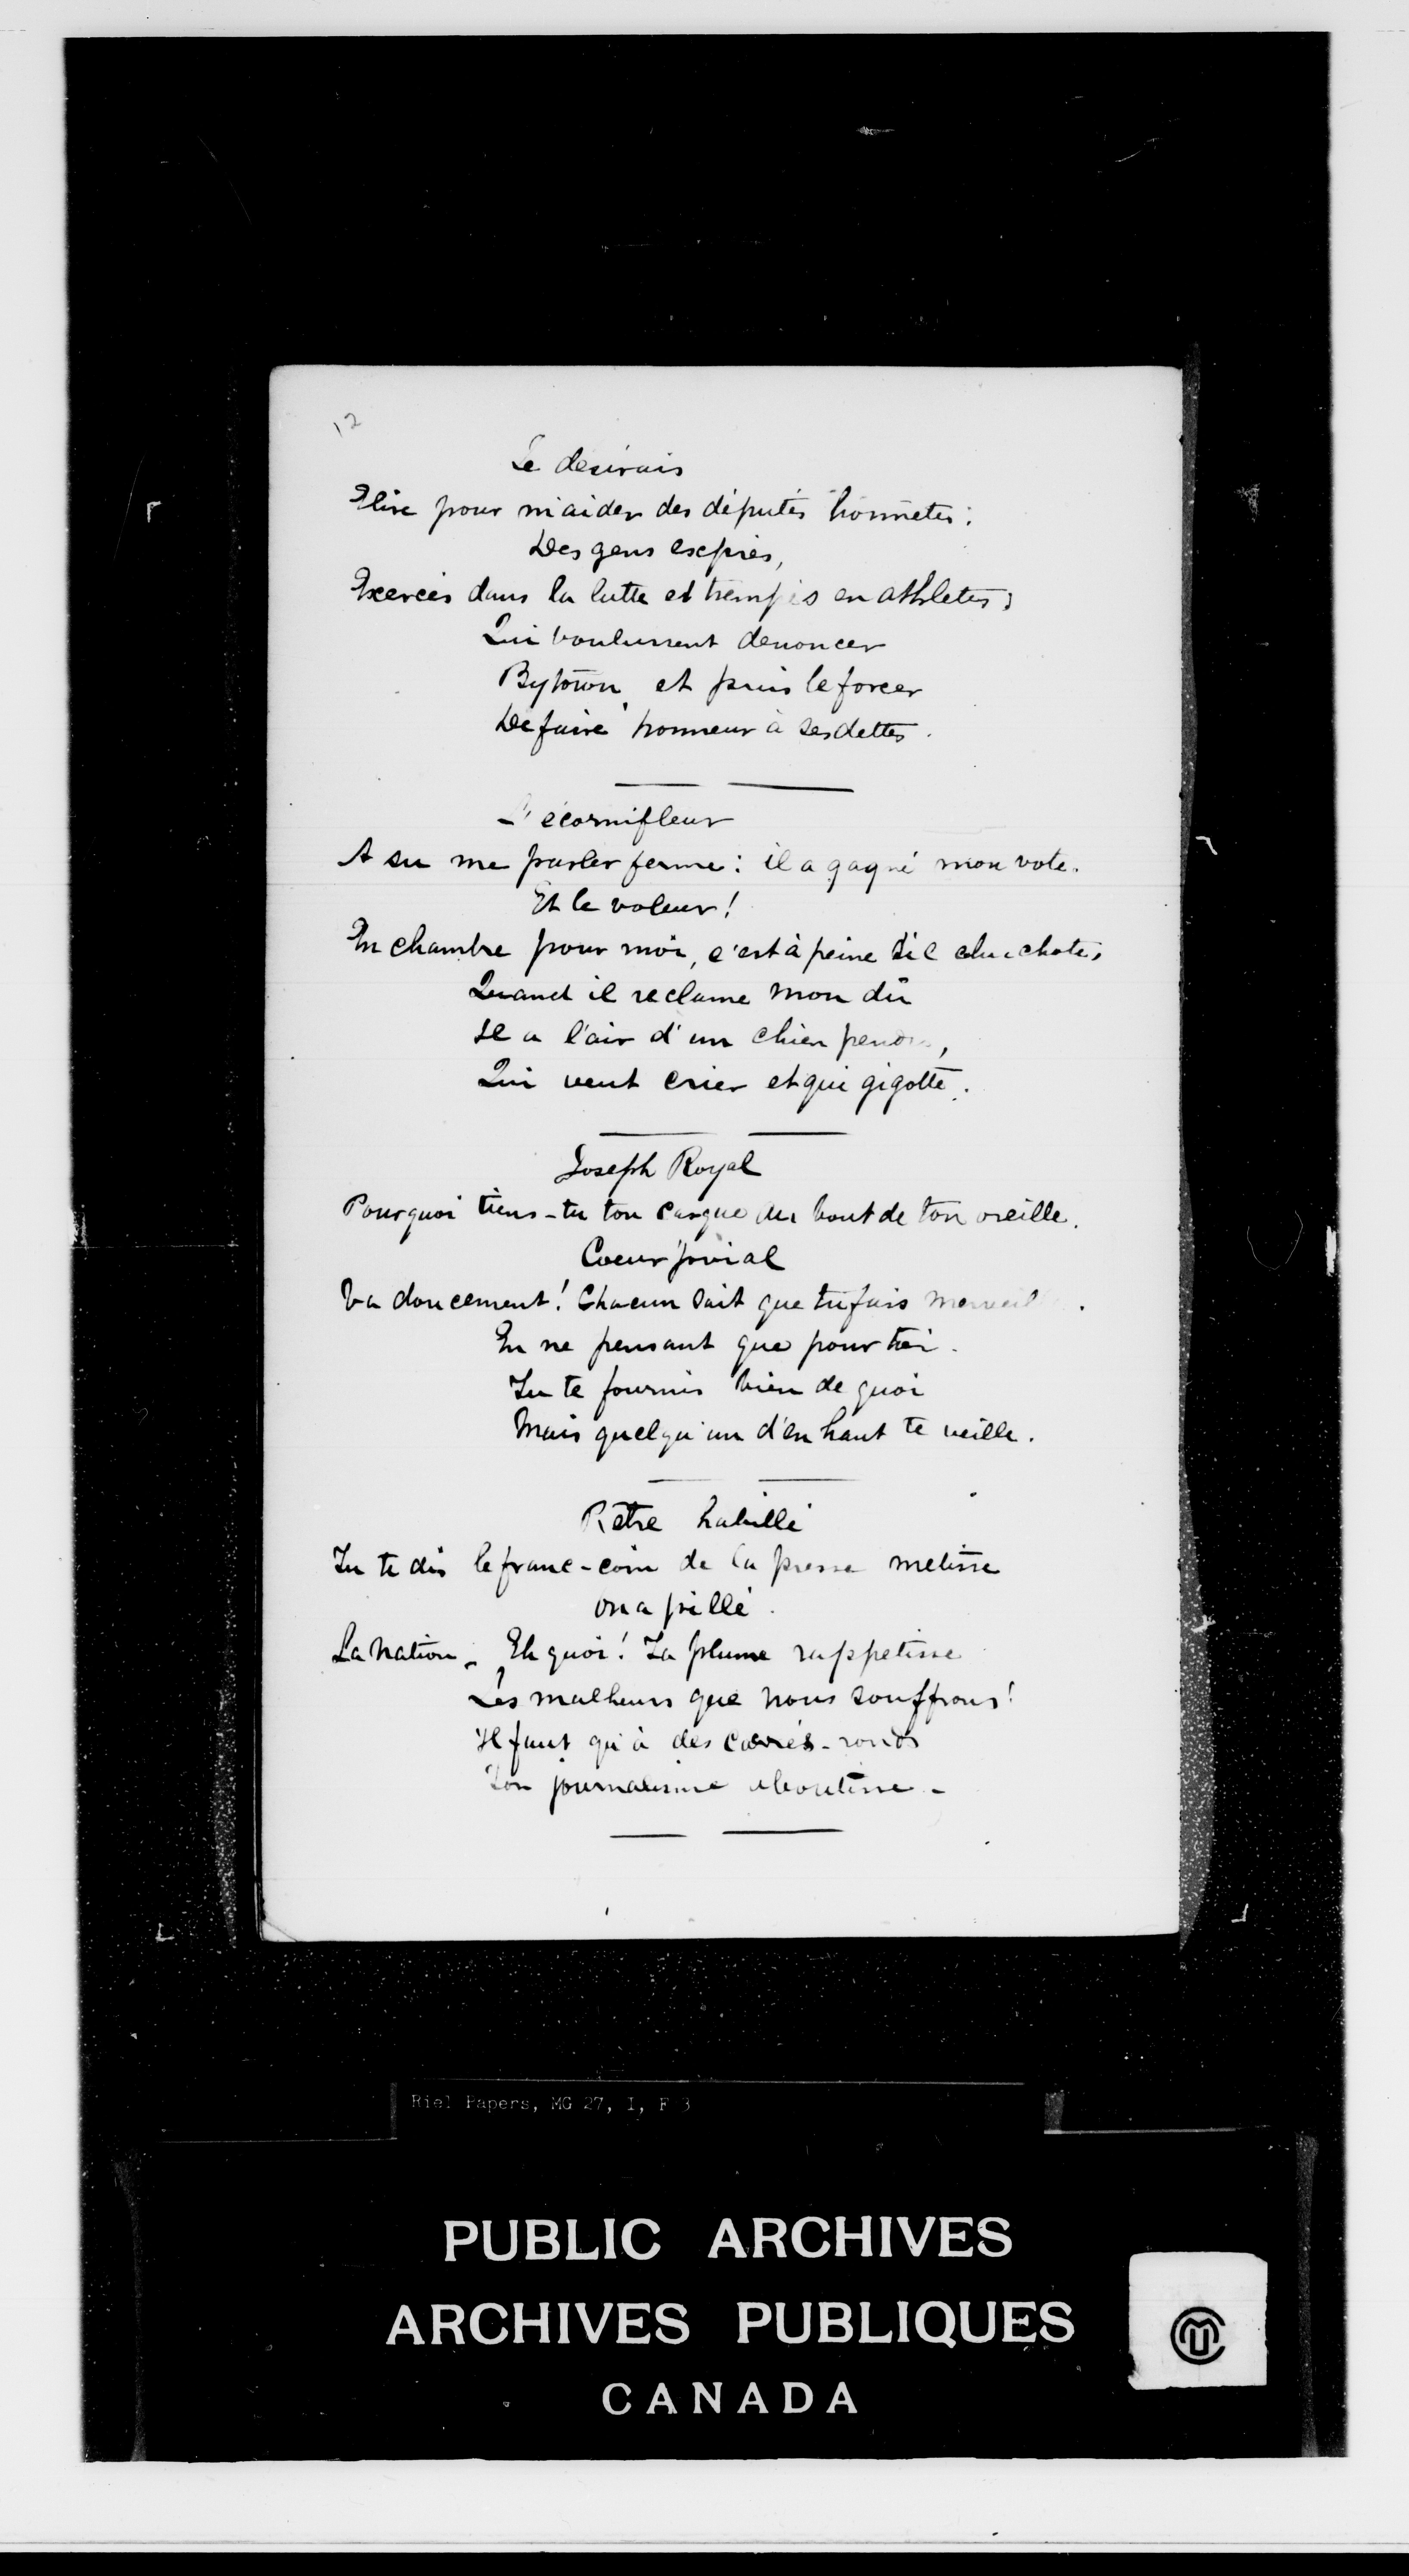 12
Je desirais
Elire pour m'aider des députés honnêtes:
Des gens exprès,
Exercés dans la lutte et trempés en athletes;
Qui voulussent denoncer
Bytown, et puis le forcer
De faire honneur à ses dettes.
L'écornifleur
A su me parler ferme: il a gagné mon vote.
Et le voleur!
En chambre pour moi, c'est à peine s'il chuchote,
Quand il reclame mon dû
Il a l'air d'un chien pendu,
Qui veut crier et qui gigotte.
Joseph Royal
Pourquoi tiens-tu ton casque au bout de ton oreille.
Coeur jovial
Va doucement! Chacun sait que tu fais merveille.
En ne pensant que pour toi.
Tu te fournis bien de quoi
Mais quelqu'un d'en haut te veille.
Rêtre habillé
Tu te dis le franc-coin de la presse metisse
On a pillé.
La nation. Eh quoi! Ta plume rappetisse
Les malheurs que nous souffrons!
Il faut qu'à des carrés-ronds
Ton journalisme aboutisse.
Riel Papers, MG 27, I, F 3
PUBLIC ARCHIVES
ARCHIVES PUBLIQUES
CANADA